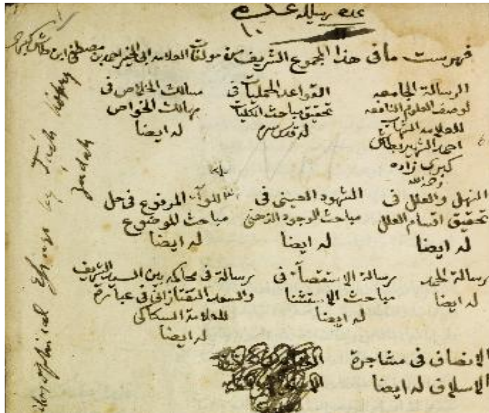 عدة رسايله عدد
١٠
فهرست ما فى هذا المجموع الشريف من مولفات العلامه ابى الخير احمد بن مصطفى ابن طاش كبرى
الرسالة الجامعه
لوصف العلوم النافعه
للعلامه
احمد الشهير بطاش
كبرى زاده
رحمه الله
القواعد الجمليات فى
تحقيق مباحث الكليات
له
مسالك الخلاص فى
مهالك الخواص
له ايضا
المنهل والعلل فى
تحقيق اقسام العلل
له ايضا
الشهود العينى فى
مباحث الوجود الذهنى
له ايضا
اللواء المرفوع فى حل
مباحث الموضوع
له ايضا
رسالة الحمد
له ايضا
رسالة الاستقصاء فى
مباحث الاستثنا
له ايضا
رسالة فى محاكمه بين السيد الشريف
والسعد التفتازانى فى عبارة
للعلامة السكاكى
له ايضا
الانصاف فى مشاجرة
الاسلاف له ايضا
Philosophical by Tash kopry
Zadah